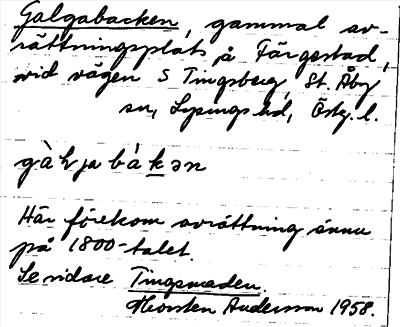 Galgabacken, gammal av-
rättningsplats å Färgestad,
vid vägen S Tingsberg, St. Åby
sn, Lysings hd, Östg. l.
gàljabàkən
Här förekom avrättning ännu
på 1800-talet.
Se vidare Tingsmaden.
Thorsten Andersson 1958.